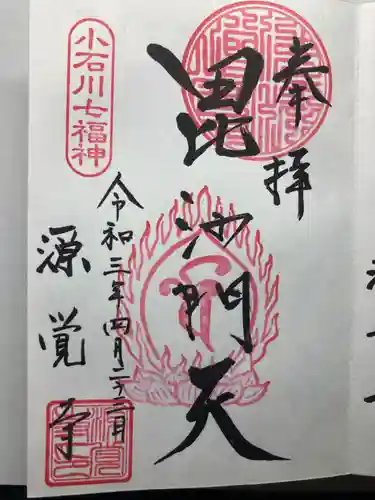 奉拝
毘沙門天
令和三年四月二十三日
源覚寺
小石川七福神